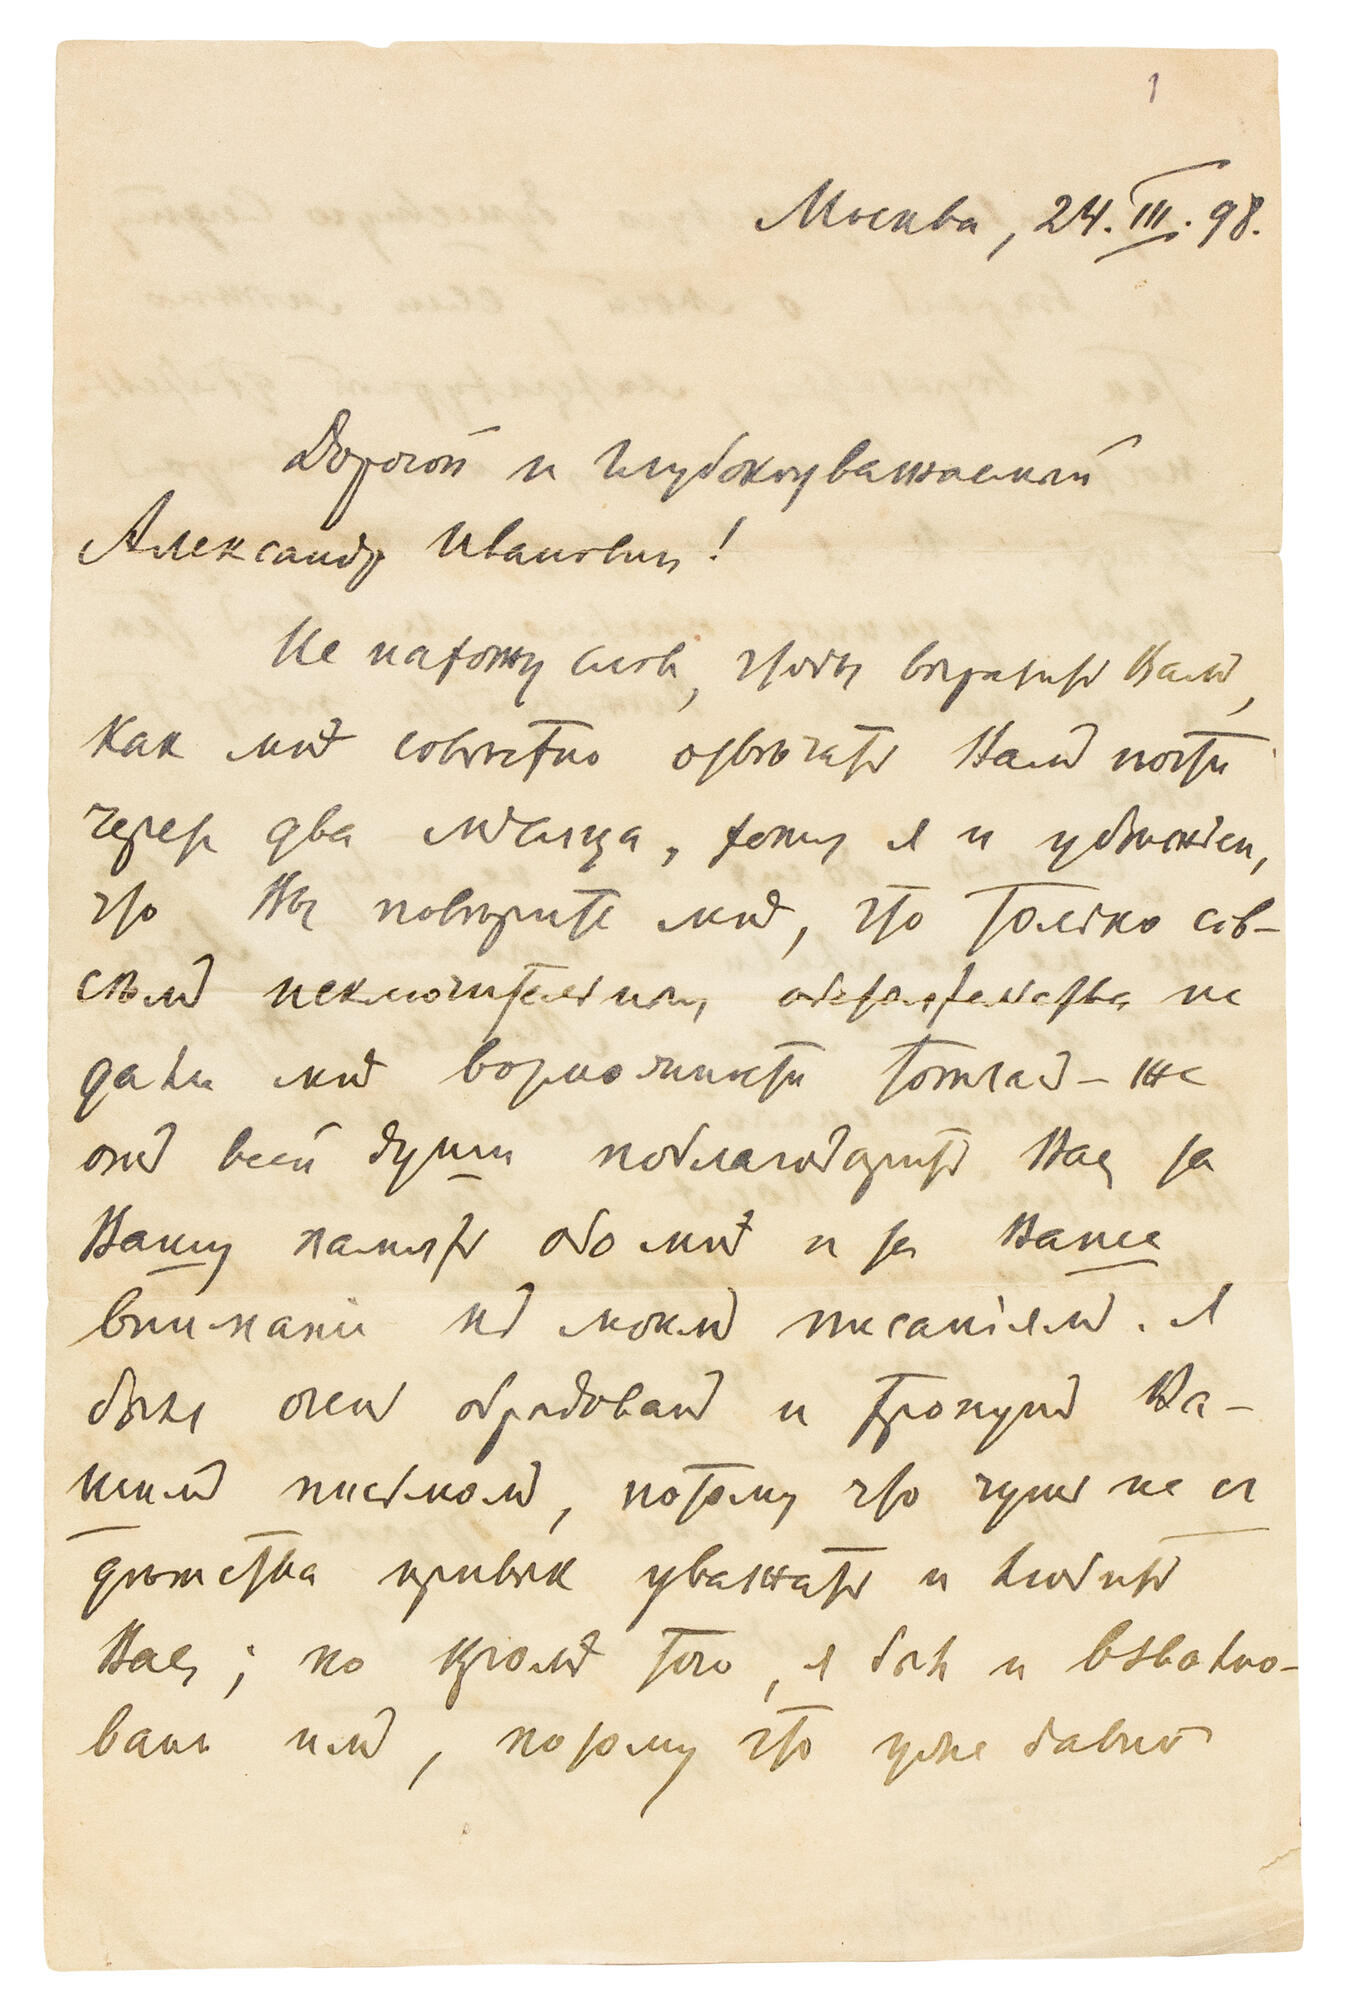 1
Москва, 24.III.98.
Дорогой и глубокоуважаемый
Александр Иванович!
Не нахожу слов, чтобы выразить Вамъ,
как мнѣ совѣстно отвѣчать Вамъ почти
через два мѣсяца, хотя я и убѣжден,
что Вы повѣрите мнѣ, что только сов-
сѣмъ исключительныя обстоятельства не
дали мнѣ возможности тотчасъ-же
отъ всей души поблагодарить Вас за
Вашу память обо мнѣ и за Ваше
внимание къ моим писаніямъ. Я
былъ очень обрадованъ и тронутъ Ва-
шимъ письмомъ, потому что чуть не съ
дѣтства привык уважать и любить
Вас; но кромѣ того, я был и взволно-
ван имъ, потому что уже давно